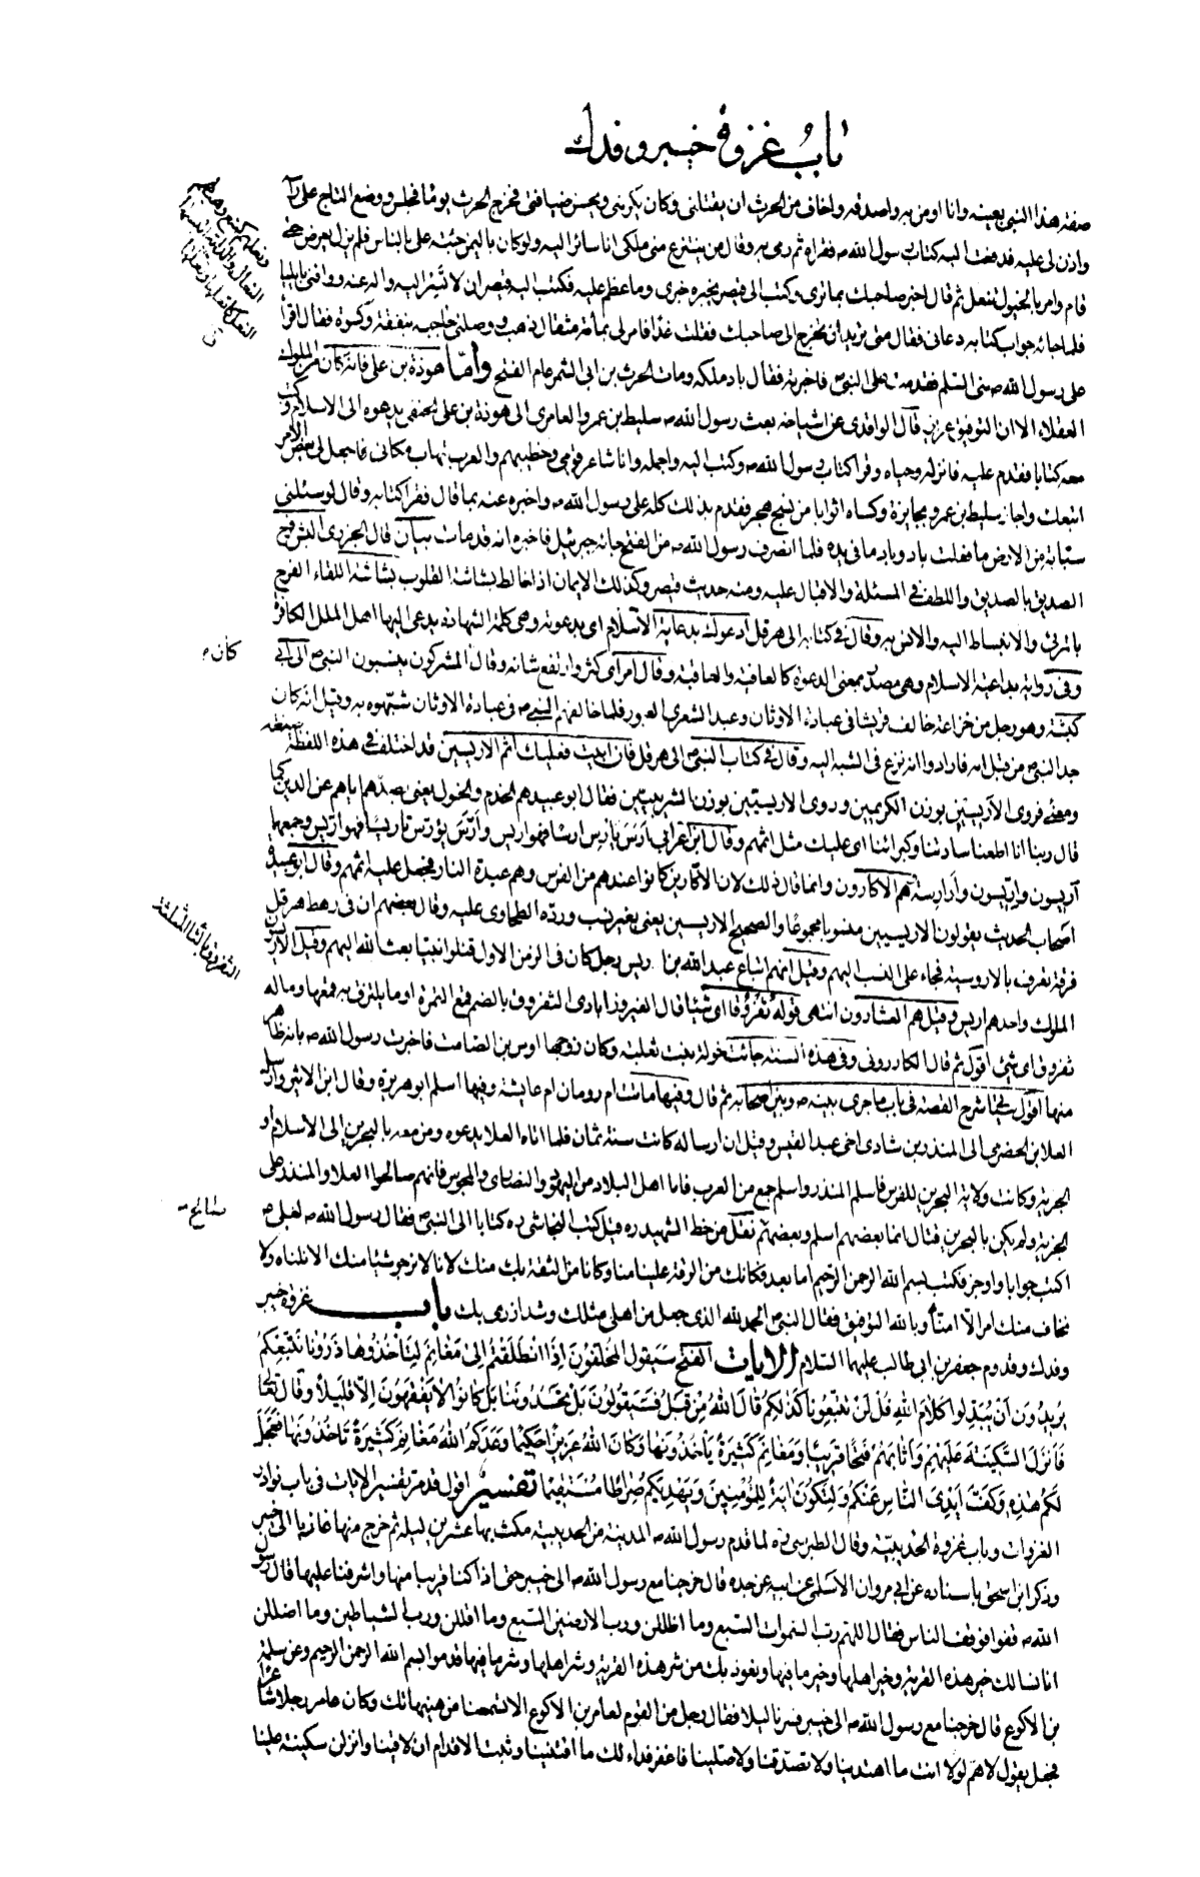 باب غزوة خيبر وفدك
صفة هذا النبي بعينه وانا اومن به واصدقه واخاف من الحرث ان يقتلني وكان يكرمني ويحسن ضيافتي فخرج الحرث يوما فجلس ووضع التاج على رأ
واذن لي عليه فدفعت اليه كتاب رسول الله ص فقرأه ثم رمى به وقال من ينتزع مني ملكي انا سائر اليه ولو كان باليمن جئته علي بالناس فلم يزل يعرض حتى
قام وامر بالخيول تنعل ثم قال اخبر صاحبك بما ترى وكتب الى قيصر يخبره خبري وما عظم عليه فكتب اليه قيصر ان لا تسر اليه واله عنه ووافني بايليا
فلما جائه جواب كتابه دعاني فقال متى تريد ان تخرج الى صاحبك فقلت غدا فامر لي بمائة مثقال ذهب ووصلني حاجبه بنفقة وكسوة فقال اقرأ
على رسول الله ص مني السلم فقدمت على النبي ص فاخبرته فقال باد ملكه ومات الحرث بن ابي الشمر عام الفتح واما هوذة بن علي فانه كان من الملوك
العقلاء الا ان التوفيق عزيز قال الواقدي عن اشياخه بعث رسول الله ص سليط بن عمرو العامري الى هوذة بن علي الحنفي يدعوه الى الاسلام وكتب
معه كتابا فقدم عليه فانزله وحباه وقرأ كتاب رسول الله ص وكتب اليه ما احسن ما تدعو اليه واجمله وانا شاعر قومي وخطيبهم والعرب تهاب مكاني فاجعل لي بعض الامر
اتبعك واجاز سليط بن عمرو بجايزة وكساه اثوابا من نسج هجر فقدم بذلك كله على رسول الله ص واخبره عنه بما قال فقرأ كتابه وقال لو سئلني
سيابة من الارض ما فعلت باد وباد ما في يده فلما انصرف رسول الله ص من الفتح جائه جبرئيل فاخبره انه قد مات بيان قال الجزري البش فرح
الصديق بالصديق واللطف في المسئلة والاقبال عليه ومنه حديث قيصر وكذلك الايمان اذا خالط بشاشته القلوب بشاشة اللقاء الفرح
بالمرئ والانبساط اليه والانس به وقال في كتابه الى هرقل ادعوك بدعاية الاسلام اي بدعوته وهي كلمة الشهادة يدعى اليها اهل الملل الكافرة
وفي رواية بداعية الاسلام وهي مصدر بمعنى الدعوة كالعافية والعاقبة وقال امر اي كثر وارتفع شانه وقال المشركون ينسبون النبي ص الى ابي
كبشة وهو رجل من خزاعة خالف قريشا في عبادة الاوثان وعبد الشعرى العبور فلما خالفهم النبي ص في عبادة الاوثان شبهوه به وقيل انه كان
جد النبي ص من قبل امه فارادوا انه نزع في الشبه اليه وقال في كتاب النبي ص الى هرقل فان ابيت فعليك اثم الاريسين قد اختلف في هذه اللفظة صيغة
ومعنى فروي الاريسين بوزن الكريمين وروي الاريسيين بوزن الشريبيين فقال ابو عبيد هم الخدم والخول يعني بصدهم اياهم عن الدين كما
قال ربنا انا اطعنا سادتنا وكبرائنا اي عليك مثل اثمهم وقال ابن اعرابي ارس يارس ارسا فهو اريس وارس يؤرس تاريسا فهو اريس وجمعها
اريسون واريسون وارارسة وهم الاكارون وانما قال ذلك لان الاكارين كانوا عندهم من الفرس وهم عبدة النار فجعل عليه اثمهم وقال ابو عبيد
اصحاب الحديث يقولون الاريسيين منسوبا مجموعا والصحيح الاريسين يعني بغير نسب ورده الطحاوي عليه وقال بعضهم ان في رهط هرقل
فرقة تعرف بالاروسية فجاء على النسب اليهم وقيل انهم اتباع عبد الله بن اريس رجل كان في الزمن الاول قتلوا نبيا بعثه الله اليهم وقيل الاريسون
الملوك واحدهم اريس وقيل هم العشارون انتهى قوله ثفروقا اي شيئا قال الفيروزابادي الثفروق بالضم قمع التمرة او ما يلتزق به قمعها وما له
ثفروق اي شيء اقول ثم قال الكازروني وفي هذه السنة جائت خولة بنت ثعلبة وكان زوجها اوس بن الصامت فاخبرت رسول الله ص بانه ظاهر
منها اقول سيجئ شرح القصة في باب ما جرى بينه ص وبين اصحابه ثم قال وفيها ماتت ام رومان ام عايشة وفيها اسلم ابو هريرة وقال ابن الاثير وارسل
العلا بن الحضرمي الى المنذر بن شادي اخي عبد القيس وقيل ان ارساله كانت سنة ثمان فلما اتاه العلا يدعوه ومن معه بالبحرين الى الاسلام او
الجزية وكانت ولاية البحرين للفرس فاسلم المنذر واسلم جمع من العرب فاما اهل البلاد من اليهود والنصارى والمجوس فانهم صالحوا العلا والمنذر على
الجزية ولم يكن بالبحرين قتال انما بعضهم اسلم وبعضهم نقل من خط الشهيد ره قيل كتب النجاشي ره كتابا الى النبي ص فقال رسول الله ص لعلي ص
اكتب جوابا واوجز فكتب بسم الله الرحمن الرحيم اما بعد فكانك من الرقة علينا منا وكانا من الثقة بك منك لانا لا نرجو شيئا منك الا نلناه ولا
نخاف منك امرا الا امناه وبالله التوفيق فقال النبي ص الحمد لله الذي جعل من اهلي مثلك وشد ازري بك باب غزوة خيبر
وفدك وقدوم جعفر بن ابي طالب عليهما السلام الايات الفتح سَيَقُولُ الْمُخَلَّفُونَ إِذَا انْطَلَقْتُمْ إِلَى مَغَانِمَ لِتَأْخُذُوهَا ذَرُونَا نَتَّبِعْكُمْ
يُرِيدُونَ أَنْ يُبَدِّلُوا كَلَامَ اللهِ قُلْ لَنْ تَتَّبِعُونَا كَذَلِكُمْ قَالَ اللهُ مِنْ قَبْلُ فَسَيَقُولُونَ بَلْ تَحْسُدُونَنَا بَلْ كَانُوا لَا يَفْقَهُونَ إِلَّا قَلِيلًا وقال تعالى
فَأَنْزَلَ السَّكِينَةَ عَلَيْهِمْ وَأَثَابَهُمْ فَتْحًا قَرِيبًا وَمَغَانِمَ كَثِيرَةً يَأْخُذُونَهَا وَكَانَ اللهُ عَزِيزًا حَكِيمًا وَعَدَكُمُ اللهُ مَغَانِمَ كَثِيرَةً تَأْخُذُونَهَا فَعَجَّلَ
لَكُمْ هَذِهِ وَكَفَّ أَيْدِيَ النَّاسِ عَنْكُمْ وَلِتَكُونَ آيَةً لِلْمُؤْمِنِينَ وَيَهْدِيَكُمْ صِرَاطًا مُسْتَقِيمًا تفسير اقول قد مر تفسير الايات في باب نوادر
الغزوات وباب غزوة الحديبية وقال الطبرسي ره لما قدم رسول الله ص المدينة من الحديبية مكث بها عشرين ليلة ثم خرج منها غازيا الى خيبر
وذكر ابن اسحق باسناده عن ابي مروان الاسلمي عن ابيه عن جده قال خرجنا مع رسول الله ص الى خيبر حتى اذا كنا قريبا منها واشرفنا عليها قال رسول
الله ص قفوا فوقف الناس فقال اللهم رب السموات السبع وما اظللن ورب الارضين السبع وما اقللن ورب الشياطين وما اضللن
انا نسالك خير هذه القرية وخير اهلها وخير ما فيها ونعوذ بك من شر هذه القرية وشر اهلها وشر ما فيها قدموا بسم الله الرحمن الرحيم وعن سلمة
بن الاكوع قال خرجنا مع رسول الله ص الى خيبر فسرنا ليلا فقال رجل من القوم لعامر بن الاكوع الا تسمعنا من هنيهاتك وكان عامر رجلا شاعرا
فجعل يقول لاهم لولا انت ما اهتدينا ولا تصدقنا ولا صلينا فاغفر فداء لك ما اقتنينا وثبت الاقدام ان لاقينا وانزلن سكينة علينا
كان ص
الثفروق بالثاء المثلثة
صالح